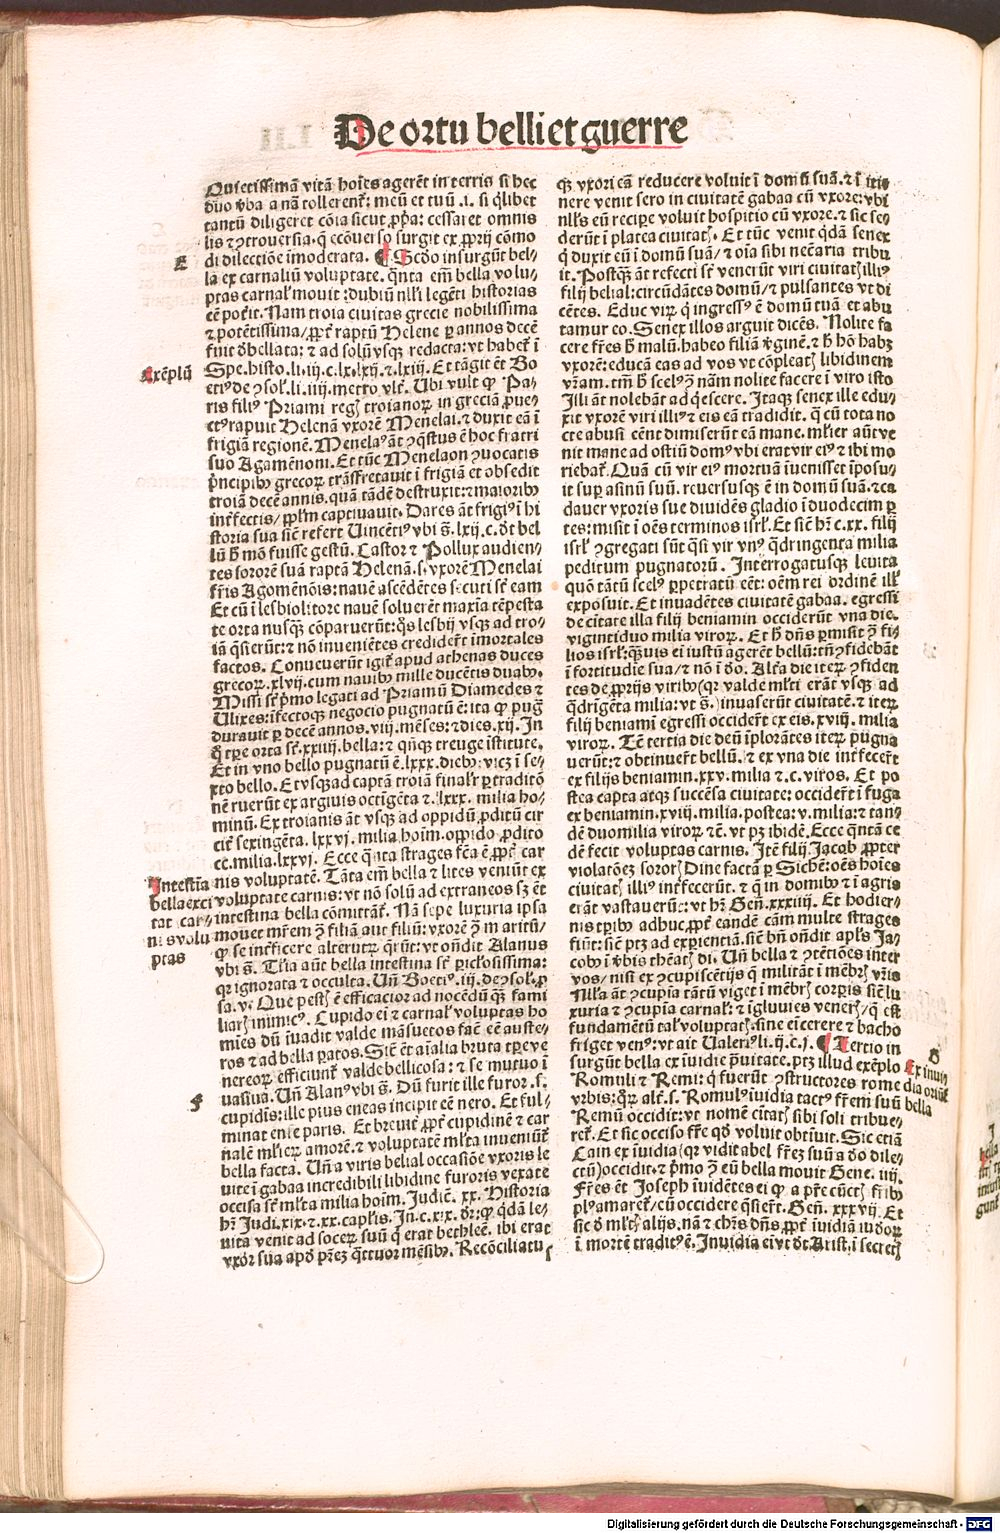 De ortu belli et guerre
Quietissimā vitā hoīes agerēt in terris si hec
duo v̄ba a nā tollerent̄: meū et tuū .i. si q̄libet
tantū diligeret cōia sicut ꝓp̄a: cessaret omnis
lis ⁊ ꝯtrouersia. q̄ ecōuerso surgit ex ꝓprij cōmo
di dilectiōe īmoderata. ¶ Scd̄o insurgūt bel-
E
la ex carnaliū voluptate. q̄nta em̄ bella volu-
ptas carnal̓ mouit: dubiū nll̓i legēti historias
eē pōt̓it. Nam troia ciuitas grecie nobilissima
⁊ potētissima/ ꝓpt̄ raptū Helene ꝑ annos decē
fuit d̄bellata: ⁊ ad solū vsqꝫ redacta: vt habet̄ ī
Exēplū
Spe. histo. li. iij. c. lx. lxij. ⁊ lxiij. Et tāgit ēt Bo
etiꝰ de ꝯsol̓. li. iiij. metro vlt̄. Ubi vult ꝙ Pa-
ris filiꝰ Priami reg̓ troianoꝝ in greciā ꝓue-
etꝰ rapuit Helenā vxorē Menelai. ⁊ duxit eā ī
frigiā regionē. Menelaꝰ āt ꝯq̄stus ē hoc fratri
suo Agamēnoni. Et tūc Menelaon ꝯuocatis
p̄ncipibꝰ grecoꝝ trāsfretauit ī frigiā et obsedit
troiā decē annis. quā tādē destruxit: ⁊ maioribꝰ
int̄fectis/ ppl̄m captiuauit. Dares āt frigiꝰ ī hi
storia sua sic̄ refert Uincētiꝰ vbi s̄. lxij. c. d̄t bel
lū h̄ mō fuisse gestū. Castor ⁊ Pollux audien-
tes sororē suā raptā Helenā. s. vxorē Menelai
fr̄is Agomēnōis: nauē ascēdētes secuti sr̄ eam
Et cū ī lesbio litore nauē soluerēt maxīa tēpesta
te orta nusqꝫ cōparuerūt: q̄s lesbij vsqꝫ ad tro-
iā q̄sierūt: ⁊ nō inueniētes credider̄t īmortales
factos. Conuenerūt igit̄ apud athenas duces
grecoꝝ. xlvij. cum nauibꝰ mille ducētis duabꝰ.
Missi sr̄ p̄mo legati ad Priamū Diamedes ⁊
Ulixes: īfectoqꝫ negocio pugnatū ē: ita ꝙ pug̓
durauit ꝑ decē annos. viij. mēses: ⁊ dies. xij. In
q̄ tꝑe orta sr̄. xxiiij. bella: ⁊ q̄nqꝫ treuge īstitute.
Et in vno bello pugnatū ē. lxxx. diebꝰ: vicꝫ ī se-
xto bello. Et vsqꝫ ad captā troiā final̓r ꝑ traditō
nē ruerūt ex argiuis octīgēta ⁊. lxxx. milia ho-
minū. Ex troianis āt vsqꝫ ad oppidū ꝓditū cir
cit̄ sexingēta. lxxvj. milia hoīm. oppido ꝓdito
cc̄. milia. lxxvj. Ecce q̄nta strages fc̄a ē ꝓpt̄ car
nis voluptatē. Tāta em̄ bella ⁊ lites veniūt ex
voluptate carnis: vt nō solū ad extraneos sꝫ ēt
intestina bella cōmittāt̄. Nā sepe luxuria ipsa
Intestīa
bella exci
tat car-
nis volu
ptas
mouet mr̄em ꝯ̄ filiā aut filiū: vxorē ꝯ̄ maritū/
ꝙ se int̄ficere alterutꝝ q̄rūt: vt on̄dit Alanus
vbi s̄. Tl̄ia aūt bella intestina sr̄ pic̄losissima:
qꝛ ignorata ⁊ occulta. Un̄ Boetiꝰ. iij. de ꝯsol̓. ꝓ
sa. v. Que pest̓ ē efficacior ad nocēdū q̄ꝫ fami
liar̓ inimicꝰ. Cupido ei ⁊ carnal̓ voluptas ho
mies dū īuadit valde māsuetos faē eē auste-
ros ⁊ ad bella ꝑatos. Sic̄ ēt aīalia bruta tꝑe ve
nereoꝝ efficiunt̄ valde bellicosa: ⁊ se mutuo ī
uasiua. Un̄ Alanꝰ vbi s̄. Dū furit ille furor. s.
F
cupidīs: ille pius eneas incipit eē nero. Et ful-
minat ense paris. Et breuit̄ ꝓpt̄ cupidinē ⁊ car
nalē ml̓ieꝝ amorē. ⁊ voluptatē ml̓ta inueniūt̄
bella facta. Un̄ a viris belial occasiōe vxoris le
uite ī gabaa incredibili libidine furoris vexate
occisa sr̄ ml̓ta milia hoīm. Judic̄. xx. Historia
hr̄ Judi. xix. ⁊. xx. capl̓is. In. c. xix. dr̄: ꝙ q̄dā le-
uita venit ad soceꝝ suū q̄ erat bethleē. ibi erat
vxor sua apd̓ pr̄eꝫ q̄ttuor mēsibꝰ. Recōciliatus
qꝫ vxori eā reducere voluit ī domū suā. ⁊ ī iti-
nere venit sero in ciuitatē gabaa cū vxore: vbi
nll̓s eū recipe voluit hospitio cū vxore. ⁊ sic se-
derūt ī platea ciuitat̓. Et tūc venit q̄dā senex
q̄ duxit eū ī domū suā/ ⁊ oīa sibi necāria tribu
it. Postq̄ꝫ āt refecti sr̄ venerūt viri ciuitat̓ illiꝰ
filij belial: circūdātes domū/ ⁊ pulsantes vt di
cētes. Educ viꝝ q̄ ingressꝰ ē domū tuā et abu
tamur eo. Senex illos arguit dicēs. Nolite fa
cere fr̄es h̄ malū. habeo filiā v̓ginē. ⁊ h̄ hō habꝫ
vxorē: educā eas ad vos vt cōpleat̓ libidinem
vr̄am. tm̄ h̄ scelꝰ ꝯ̄ nām nolite facere ī viro isto
Illi āt nolebāt adq̓escere. Itaqꝫ senex ille edu-
xit vxorē viri illiꝰ ⁊ eis eā tradidit. q̄ cū tota no
cte abusi eēnt dimiserūt eā mane. ml̓ier aūt ve
nit mane ad ostiū domꝰ vbi erat vir eiꝰ ⁊ ibi mo
riebat̄. Quā cū vir eiꝰ mortuā īuenisset īposu-
it suꝑ asinū suū. reuersusqꝫ ē in domū suā. ⁊ ca
dauer vxoris sue diuidēs gladio ī duodecim ꝑ
tes: misit ī oēs terminos isrl̓. Et sic̄ hr̄ c. xx. filij
isrl̓ ꝯgregati sūt q̄si vir vnꝰ q̄dringenta milia
peditum pugnatorū. Interrogatusqꝫ leuita
quō tātū scelꝰ ꝑpetratū eēt: oēm rei ordinē ill̓
exposuit. Et inuadētes ciuitatē gabaa. egressi
de citate illa filij beniamin occiderūt vna die.
viginti duo milia viroꝝ. Et h̄ dn̄s ꝑmisit ꝯ̄ fi-
lios isrl̓: q̄uis ei iustū agerēt bellū: tn̄ ꝯfidebāt
ī fortitudie sua/ ⁊ nō ī d̄o. Alt̄a die iteꝝ ꝯfiden
tes de ꝓprijs viribꝰ (qꝛ valde ml̓ti erāt vsqꝫ ad
q̄drigēta milia: vt s̄.) inuaserūt ciuitatē. ⁊ iteꝝ
filij beniamī egressi occider̄t ex eis. xviij. milia
viroꝝ. Tc̄ tertia die deū īplorātes iteꝝ pugna
uerūt: ⁊ obtinuer̄t bellū. ⁊ ex vna die int̄fecer̄t
ex filijs beniamin. xxv. milia ⁊. c. viros. Et po
stea capta atqꝫ succēsa ciuitate: occider̄t ī fuga
ex beniamin. xviij. milia. postea: v. milia: ⁊ tan-
dē duo milia viroꝝ ⁊c̄. vt pꝫ ibidē. Ecce q̄ntā ce
dē fecit voluptas carnis. Itē filij Jacob ꝓpter
violatōeꝫ soror̓ Dine factā ꝑ Sichē: oēs hoīes
ciuitat̓ illius int̄fecerūt. ⁊ q̄ in domibꝰ ⁊ ī agris
erāt vastauerūt: vt hr̄ Gen̄. xxxiiij. Et hodier-
nis tꝑibꝰ adhuc ꝓpt̄ eandē cām multe strages
fiūt: sic̄ ptꝫ ad experientiā. sic̄ bn̄ on̄dit apl̓s Ja-
cobꝰ ī v̓bis theāt̓ di. Un̄ bella ⁊ ꝯtētiōes inter
vos/ nisi ex ꝯcupiscētijs q̄ militāt ī mēbr̓ vr̄is
Nl̓la āt ꝯcupīa tātū viget ī mēbr̓ corꝑis sic̄ lu
xuria ⁊ ꝯcupīa carnal̓: ⁊ īgluuies vener̓/ q̄ est
fundamētū tal̓ voluptat̓. sine ei cerere ⁊ bacho
friget venꝰ: vt ait Ualeriꝰ li. ij. c. j. ¶ Tertio in
G
surgūt bella ex īuidie p̄uitate. ptꝫ illud exēplo
Ex inui-
dia oriūt̄
bella
Romuli ⁊ Remi: q̄ fuerūt ꝯstructores rome
vrbis: q̄ꝝ alt̄. s. Romulꝰ īuidia tactꝰ fr̄em suū
Remū occidit: vt nomē citat̓ sibi soli tribue-
ret̄. Et sic occiso fr̄e qd̓ voluit obtīuit. Sic etiā
Cain ex īuidia (qꝛ vidit abel fr̄eꝫ suū a d̄o dile-
ctū) occidit. ⁊ p̄mo ꝯ̄ eū bella mouit Gene. iiij.
Fr̄es ēt Joseph īuidētes ei ꝙ a pr̄e cūct̓ fr̄ibꝰ
plꝰ amaret̄/ eū occidere q̄sier̄t. Gen̄. xxxvij. Et
sic d̄ ml̓t̓ alijs. nā ⁊ chr̄s dn̄s ꝓpt̄ īuidiā iudeoꝝ
ī mortē traditꝰ ē. Inuidia ei vt d̄t Arist. ī secret̓